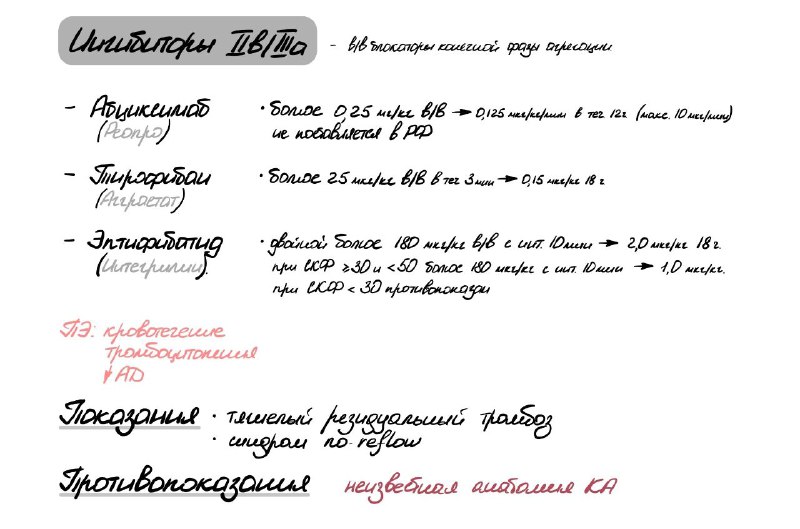 Ингибиторы IIB/IIIa - в/в блокаторы конечной фазы агрегации
- Абциксимаб • болюс 0,25 мг/кг в/в → 0,125 мкг/кг/мин в теч 12ч (макс. 10 мкг/мин)
(Реопро) не поставляется в РФ
- Тирофибан • болюс 25 мкг/кг в/в в теч 3 мин → 0,15 мкг/кг 18 ч
(Аггростат)
- Эптифибатид • двойной болюс 180 мкг/кг в/в с инт. 10 мин → 2,0 мкг/кг 18 ч.
(Интегрилин). при СКФ ≥30 и <50 болюс 180 мкг/кг с инт. 10 мин → 1,0 мкг/кг.
при СКФ < 30 противопоказан
ПЭ: кровотечение
тромбоцитопения
↓ АД
Показания • тяжелый резидуальный тромбоз
• синдром no-reflow
Противопоказания неизвестная анатомия КА